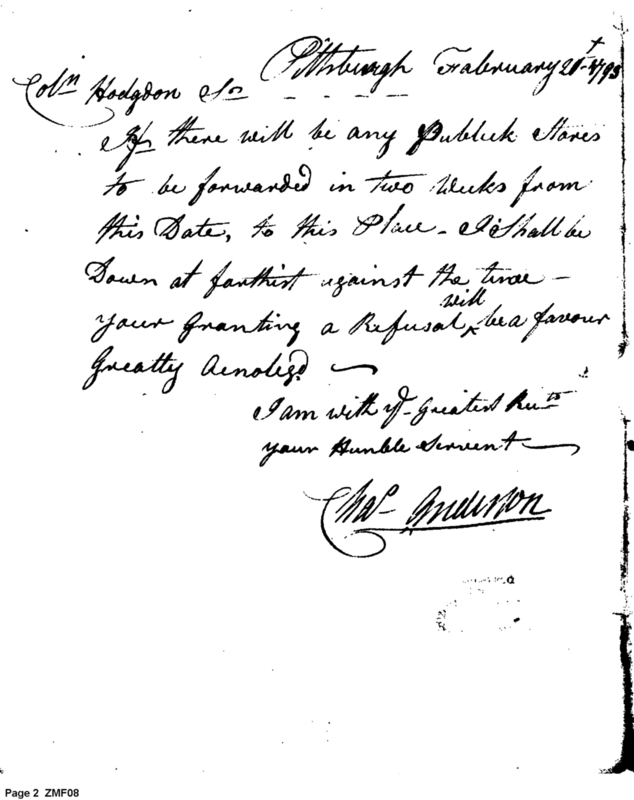 Pittsburgh Fabruary 21st 1793
Coln Hodgdon Sr
If there will be any Publick Stores
to be forwarded in two Weeks from
this Date, to this Place - I Shall be
Down at farthist against the time -
will
your Granting a Refusal ^ be a favour
Greatty Acnoleg'd
I am with ye Greatest
your Humble Servent
Chas Anderson
Page 2 ZMF08